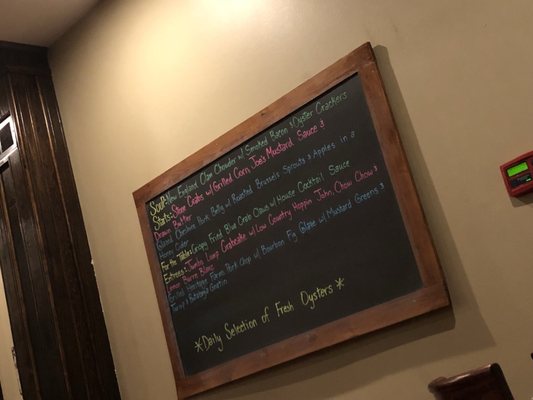 Soup: New England Clam Chowder w/ Smoked Bacon & Oyster Crackers
Starts: Stone Crabs w/ Grilled Corn, Joe's Mustard Sauce &
Drawn Butter
Glazed Cheshire Pork Belly w/ Roasted Brussels Sprouts & Apples in a
Honey Cider
For the Table: Crispy Fried Blue Crab Claws w/ House Cocktail Sauce
Entrees: Jumbo Lump Crabcake w/ Low Country Hoppin John, Chow Chow &
Lemon Burre Blanc
Grilled Heritage Farms Pork Chop w/ Bourbon Fig Glaze w/ Mustard Greens &
Turnip & Rutabaga Gratin
*Daily Selection of Fresh Oysters*